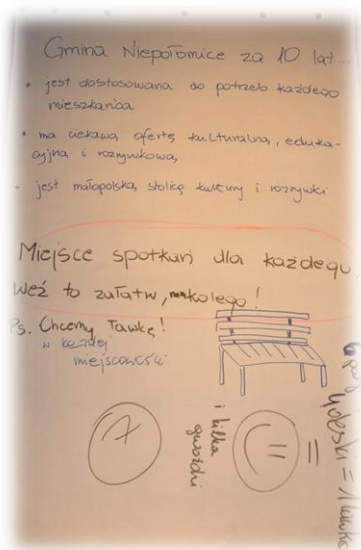 Gmina Niepołomice za 10 lat...
• jest dostosowana do potrzeb każdego
mieszkańca
• ma ciekawą ofertę kulturalną, eduka-
cyjną i rozrywkową
• jest małopolską stolicą kultury i rozrywki
Miejsce spotkań dla każdego,
weź to załatw, kolego!
Ps. Chcemy ławkę!
w każdej
miejscowości
i kilka
gwoździ
=
4 deski = 1 ławka